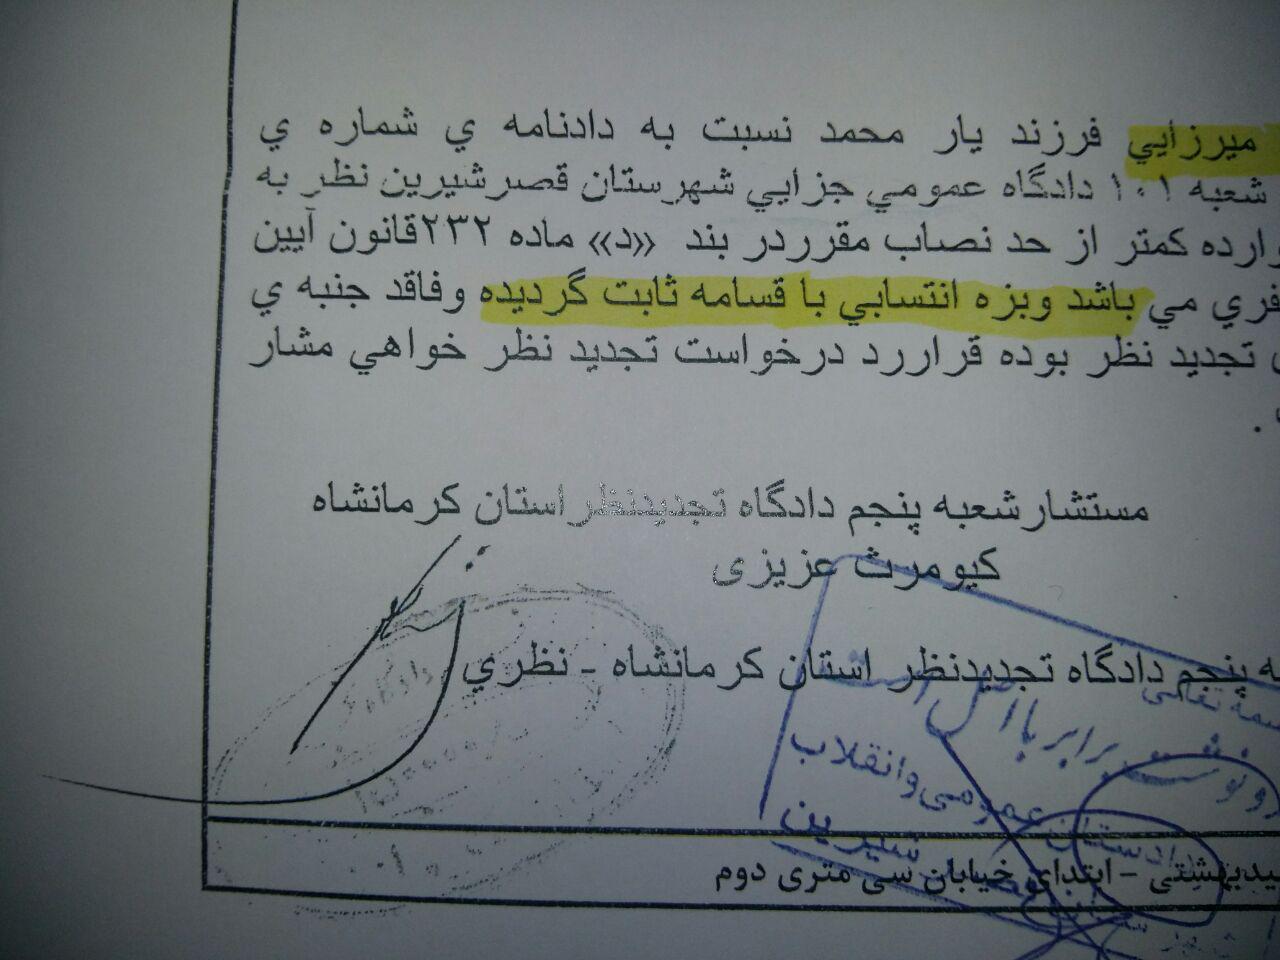 ميرزايي فرزند يار محمد نسبت به دادنامه ي شماره ي
شعبه ۱۰۱ دادگاه عمومي جزايي شهرستان قصرشيرين نظر به
وارده كمتر از حد نصاب مقرردر بند «د» ماده ۲۳۲قانون آيين
فري مي باشد وبزه انتسابي با قسامه ثابت گرديده وفاقد جنبه ي
تجديد نظر بوده قراررد درخواست تجديد نظر خواهي مشار
.
مستشارشعبه پنجم دادگاه تجديدنظراستان كرمانشاه
کیومرث عزیزی
ه پنجم دادگاه تجديدنظر استان كرمانشاه - نظري
برابر با اصل است
عمومی وانقلاب
شیرین
یدبهشتی - ابتدای خیابان سی متری دوم